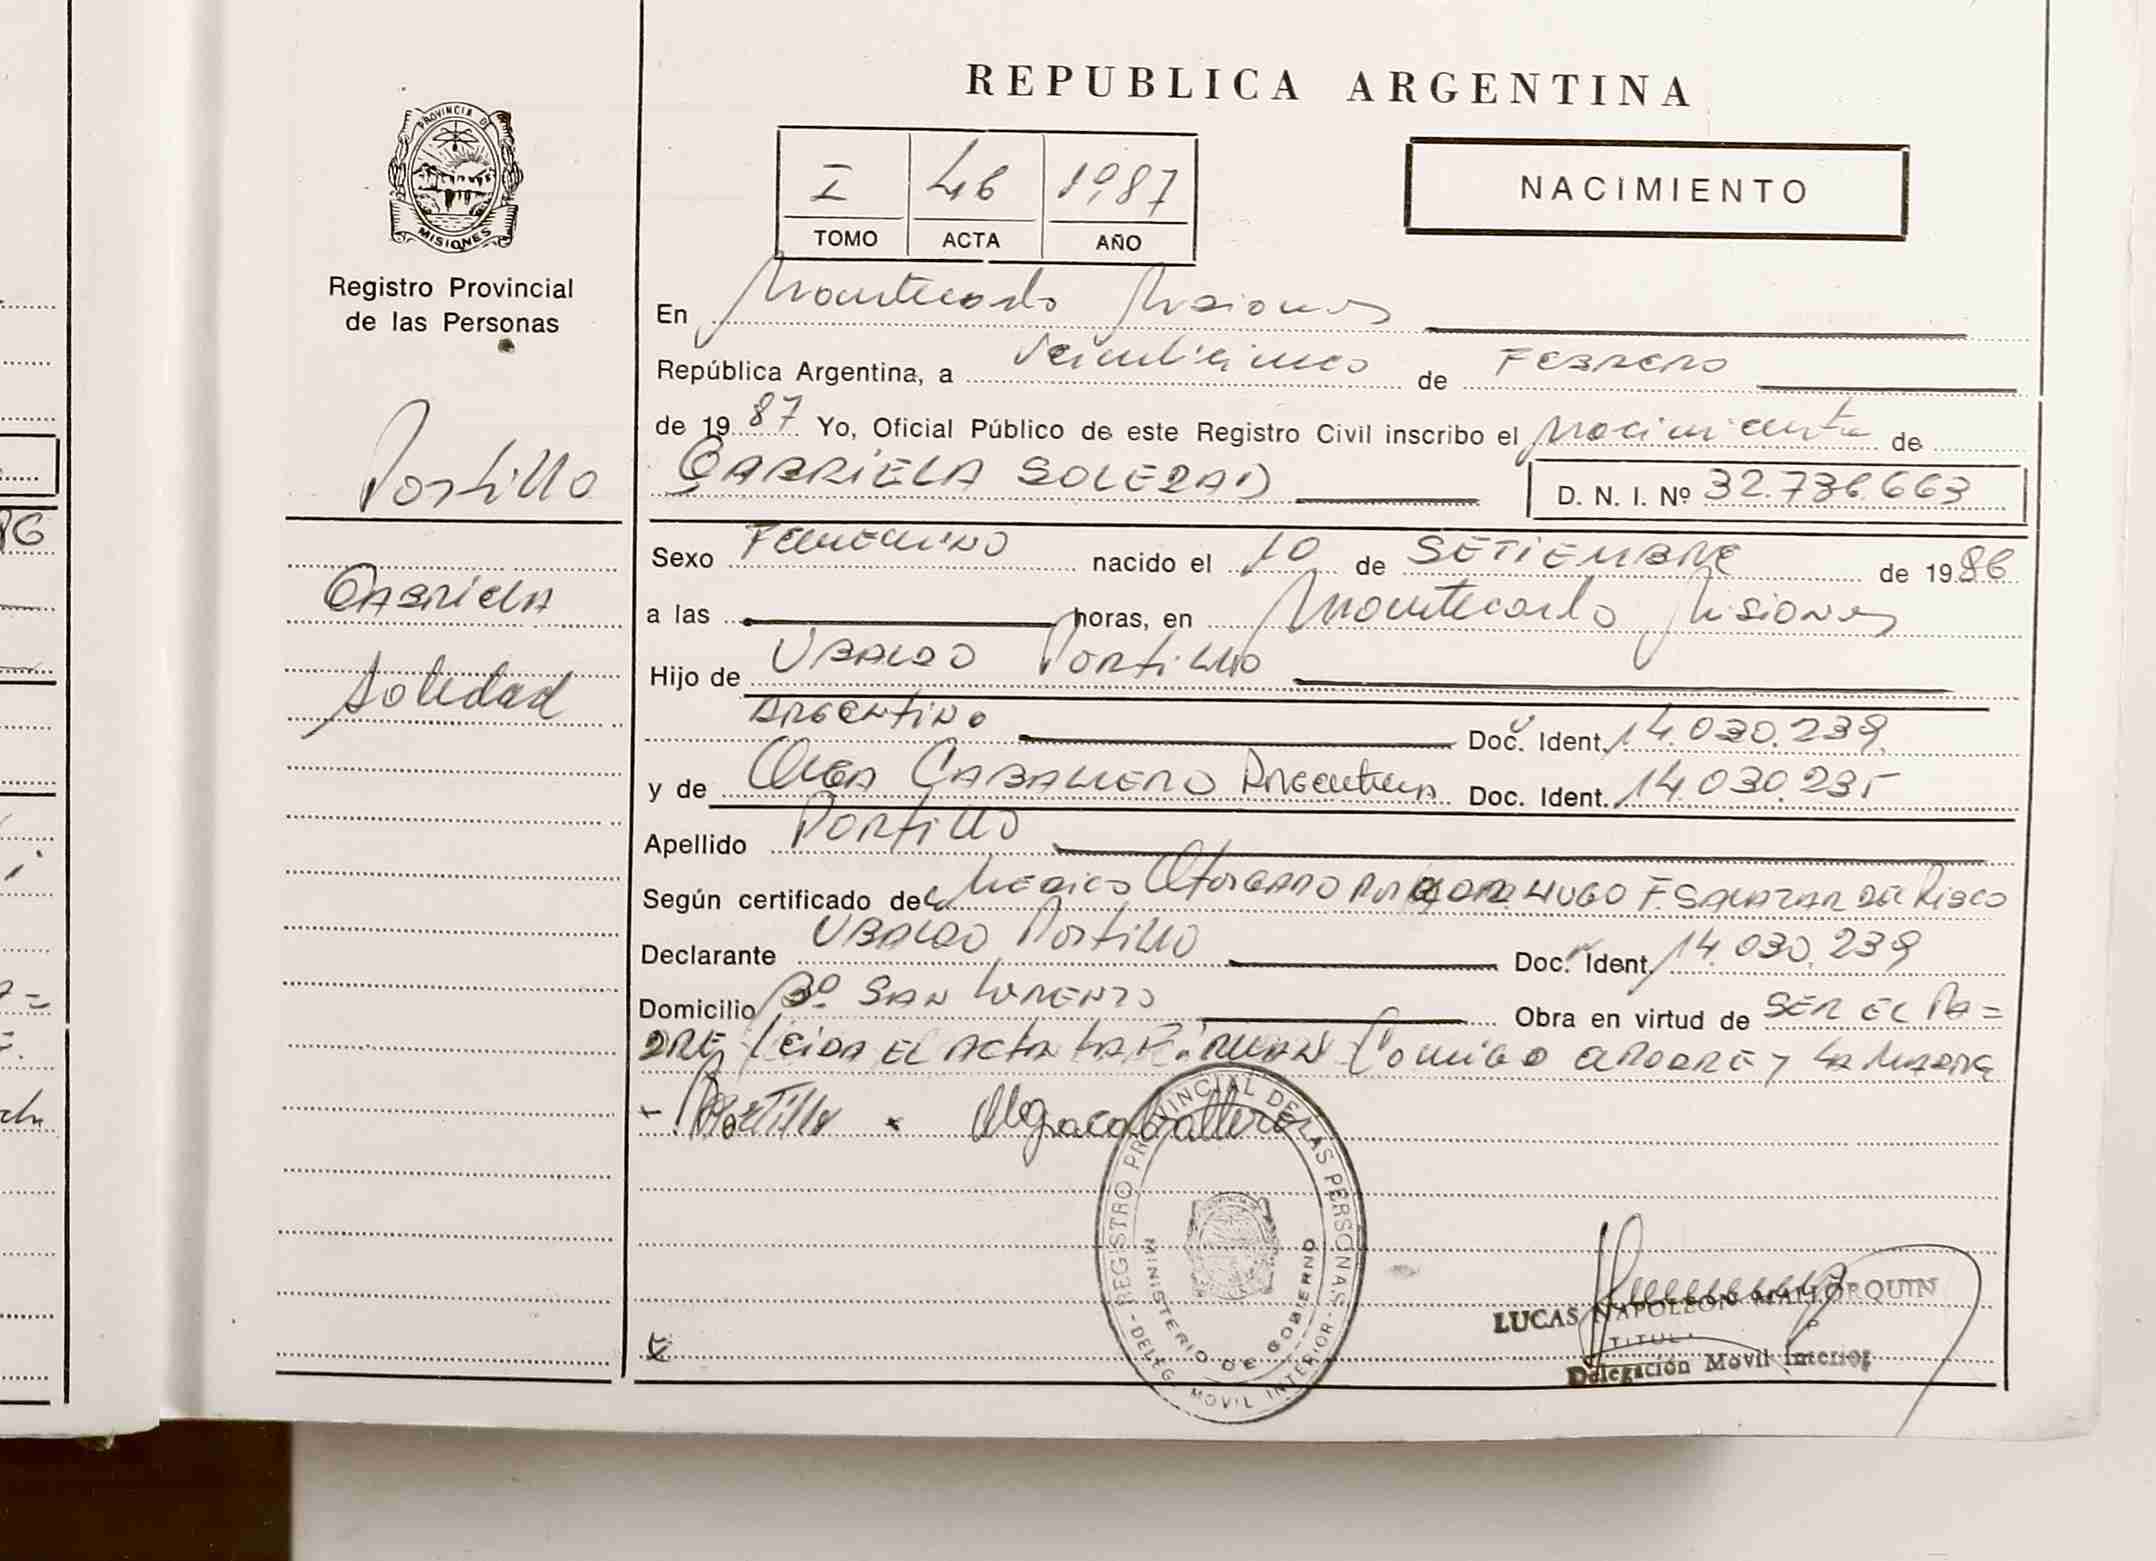 REPUBLICA ARGENTINA
PROVINCIA DE
MISIONES
Registro Provincial
de las Personas
I 46 1987
TOMO ACTA AÑO
NACIMIENTO
En Montecarlo Misiones
República Argentina, a veinticinco de FEBRERO
de 1987 Yo, Oficial Público de este Registro Civil inscribo el Nacimiento de
Portillo
GABRIELA SOLEDAD D. N. I. Nº 32.736.663
Sexo FEMENINO nacido el 10 de SETIEMBRE de 1986
Gabriela
a las horas, en Montecarlo Misiones
Soledad
Hijo de UBALDO PORTILLO
ARGENTINO Doc. Ident. 14.030.239
y de OLGA CABALLERO ARGENTINA Doc. Ident. 14.030.235
Apellido PORTILLO
Según certificado del MEDICO OTORGADO POR HUGO F. SALAZAR DEL RISCO
Declarante UBALDO Portillo Doc. Ident. 14.030.239
Domicilio Bº SAN LORENZO Obra en virtud de SER EL PA=
DRE LEIDA EL ACTA LA FIRMAN COMIGO EL PADRE Y LA MADRE
Portillo Olga caballero
REGISTRO PROVINCIAL DE LAS PERSONAS
-DELEG. MOVIL INTERIOR-
MINISTERIO DE GOBIERNO
LUCAS NAPOLEON MALLORQUIN
TITULAR
Delegación Movil Interior